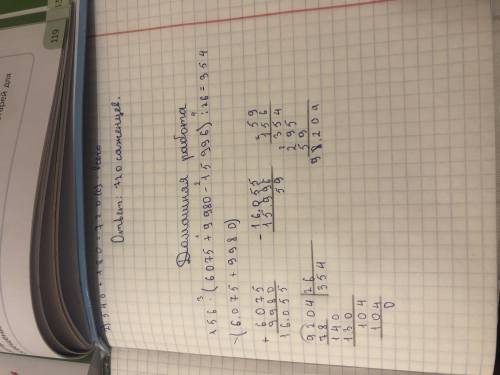 119
Ответ: 720 саженцев.
Домашняя работа
156 · (6075 + 9980 - 15.996) : 26 = 354
3 1 2 4
-(6.075 + 998 0)
+ 6075
9980
16.055
- 16.055
15.996
59
× 59
156
354
295
59
9.204
9204 26
78 354
140
130
104
104
0